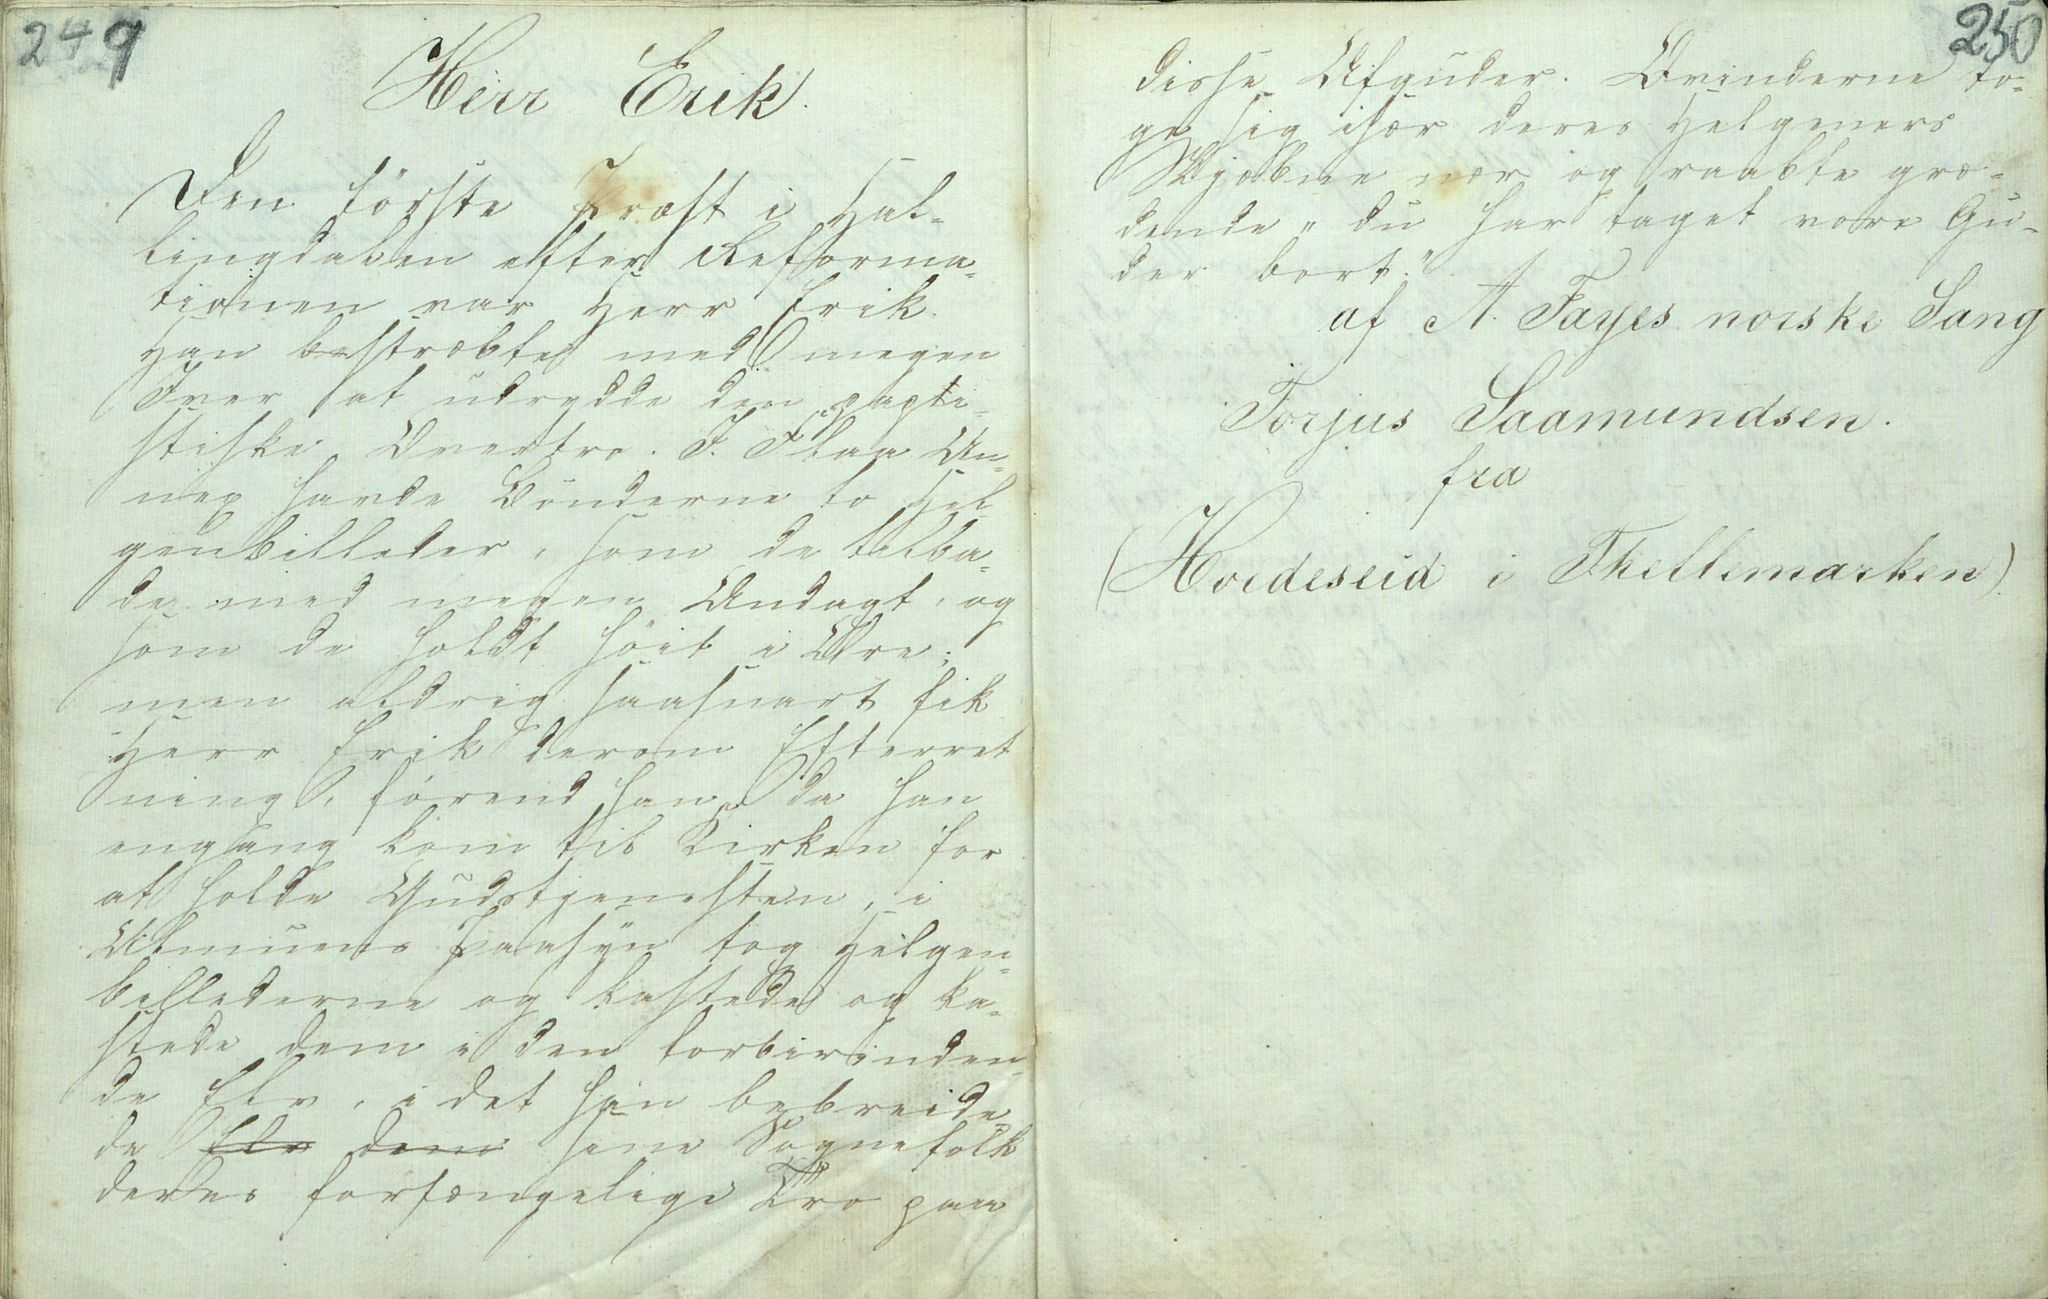 249
Herr Erik.
Den förste Præst i Hal-
lingdalen efter Reforma-
tionen var Herr Erik.
Han bestræbte med megen
Iver at udrydde den papi-
stiske Overtro. I Flaa An-
nex havde Bönderne to Hel
genbilleder, som de tilba-
de med megen Andagt, og
som de holdt höit i Ære;
men aldrig saasnart fik
Herr Erik derom Efterret
ning, förend han, da han
engang kom til Kirken for
at holde Gudstjenesten, i
Almuens Paasyn tog Helgen-
billederne og kastede og ka-
stede dem i den forbirinden-
de Elv, i det han bebreide-
de Elv dem sine Sognefolk
deres forfængelige Tro paa
250
disse Afguder. Qvinderne to-
ge sig især deres Helgeners
Skjæbne nær og raabte græ-
dende „du har taget vore Gu-
der bort."
af A. Fayes norske Sang
Torjus Saamundsen.
fra
(Hvideseid i Thellemarken)